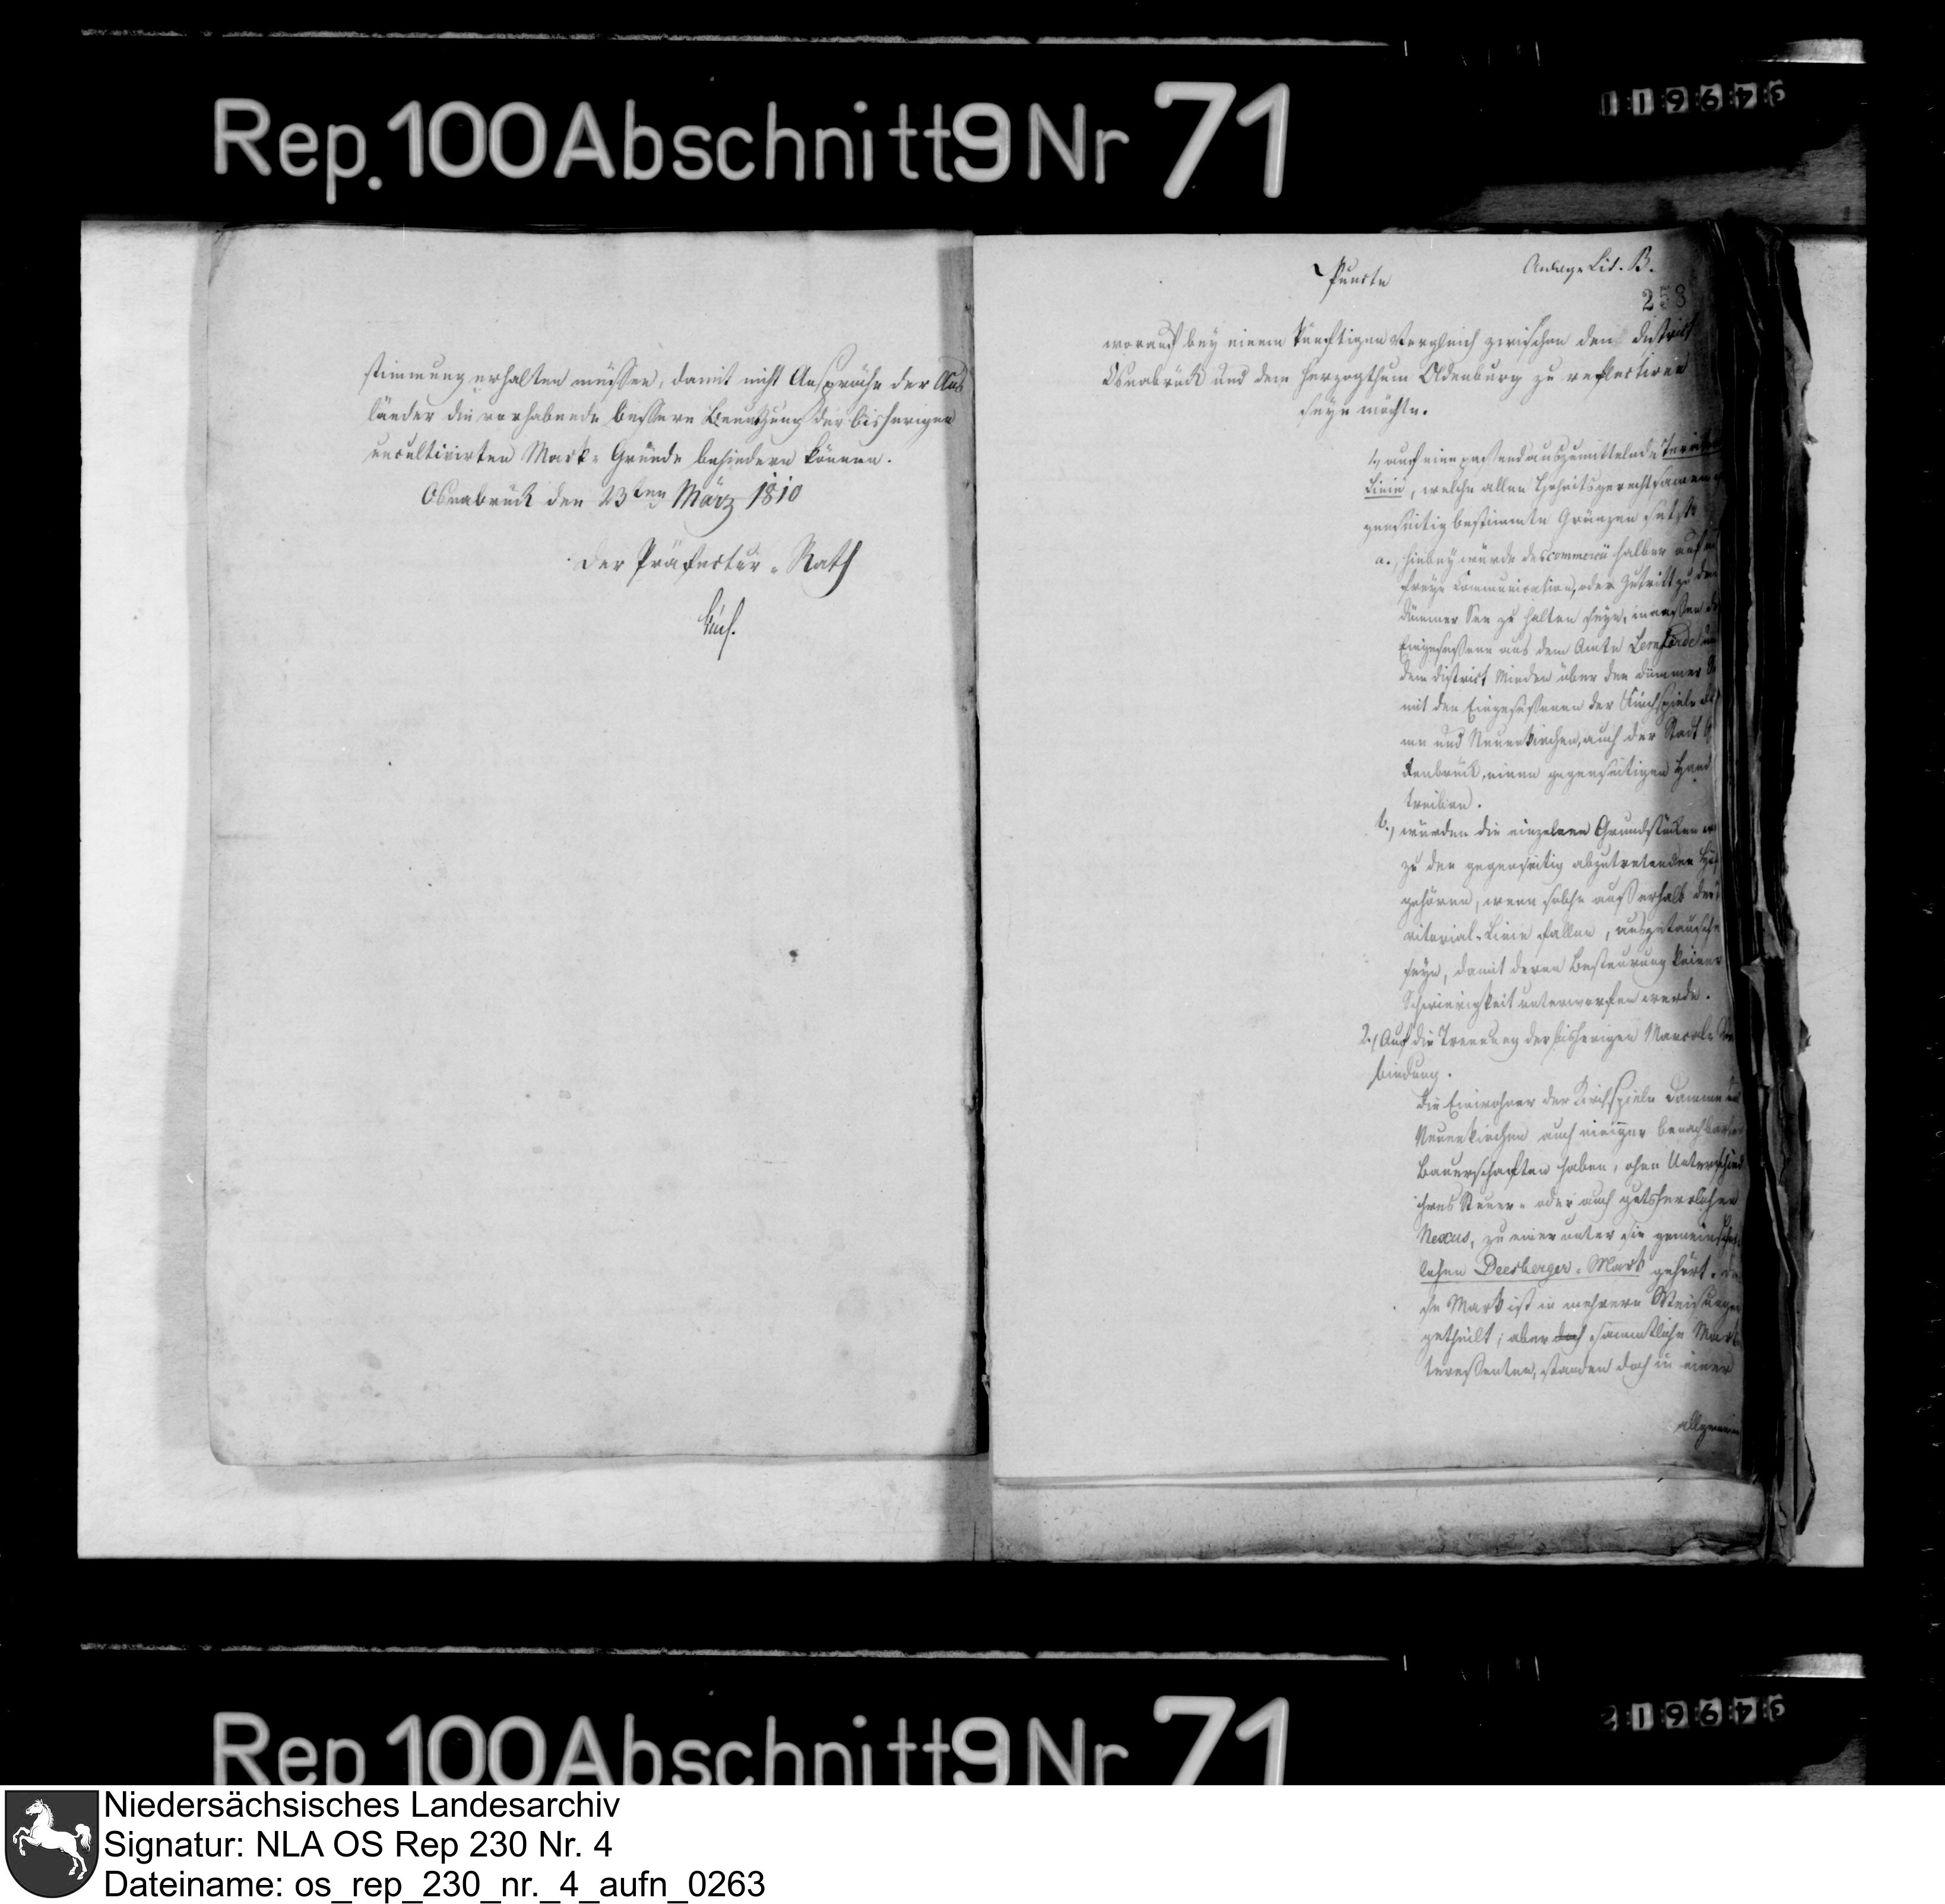 119645
Rep. 100 Abschnitt 9 Nr 71
stimmung erhalten müssen, damit nicht Ansprüche der Aus
länder die vorhabende bessere Benutzung der bisherigen
uncultivirten Mark-Gründe behindern können.
Osnabrück den 23ten März 1810
Der Präfectur-Rath
Anlage Lit. B.
Puncte
253
worauf bey einem künftigen Vergleich zwischen dem District
Osnabrück und dem Herzogthum Oldenburg zu reflectiren
seyn möchte.
1.) auf eine passend auszumittelnde
Linie, welche allen Hoheitsgerechtsamen
genseitig bestimmte Gränzen setzt
a., hiebey würde des commercii halber auf
freye Communication, oder Zutritt zu dem
Dümmer See zu halten seyn, inmaßen
Eingesessene aus dem Amte Lemförde
dem District Minden über den Dümmer
mit den Eingesessenen der Kirchspiele
me und Neuenkirchen, auch der Stadt
kenbrück, einen gegenseitigen Hand
treiben.
b., würden die einzelnen Grundstücke
zu den gegenseitig abzutretenden
gehören, wenn solche außerhalb der
ritorial-Linie fallen, ausgetauscht
seyn, damit deren Besteurung keiner
Schwierigkeit unterworfen werde.
2.) Auf die Trennung der bisherigen Marcal-Ver
bindung.
Die Einwohner der Kirchspiele Damme
Neuenkirchen auch einiger benachbarten
Bauerschaften haben, ohne Unterschied
ihres Steuer- oder auch gutsherrlichen
Nexus, zu einer unter sie gemeinschaft
lichen Deesberger-Mark gehört.
se Mark ist in mehrere Weisungen
getheilt; aber sämmtliche Mark
teressenten, standen doch in einer
allgemein
219645
Rep 100 Abschnitt 9 Nr 71
Niedersächsisches Landesarchiv
Signatur: NLA OS Rep 230 Nr. 4
Dateiname: os_rep_230_nr._4_aufn_0263